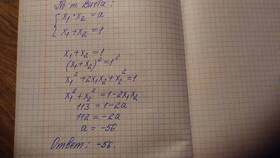 По т. Виета:
x₁ * x₂ = a
x₁ + x₂ = 1
x₁ + x₂ = 1
(x₁ + x₂)² = 1²
x₁² + 2x₁x₂ + x₂² = 1
x₁² + x₂² = 1 - 2x₁x₂
113 = 1 - 2a
112 = -2a
a = -56
Ответ: -56.